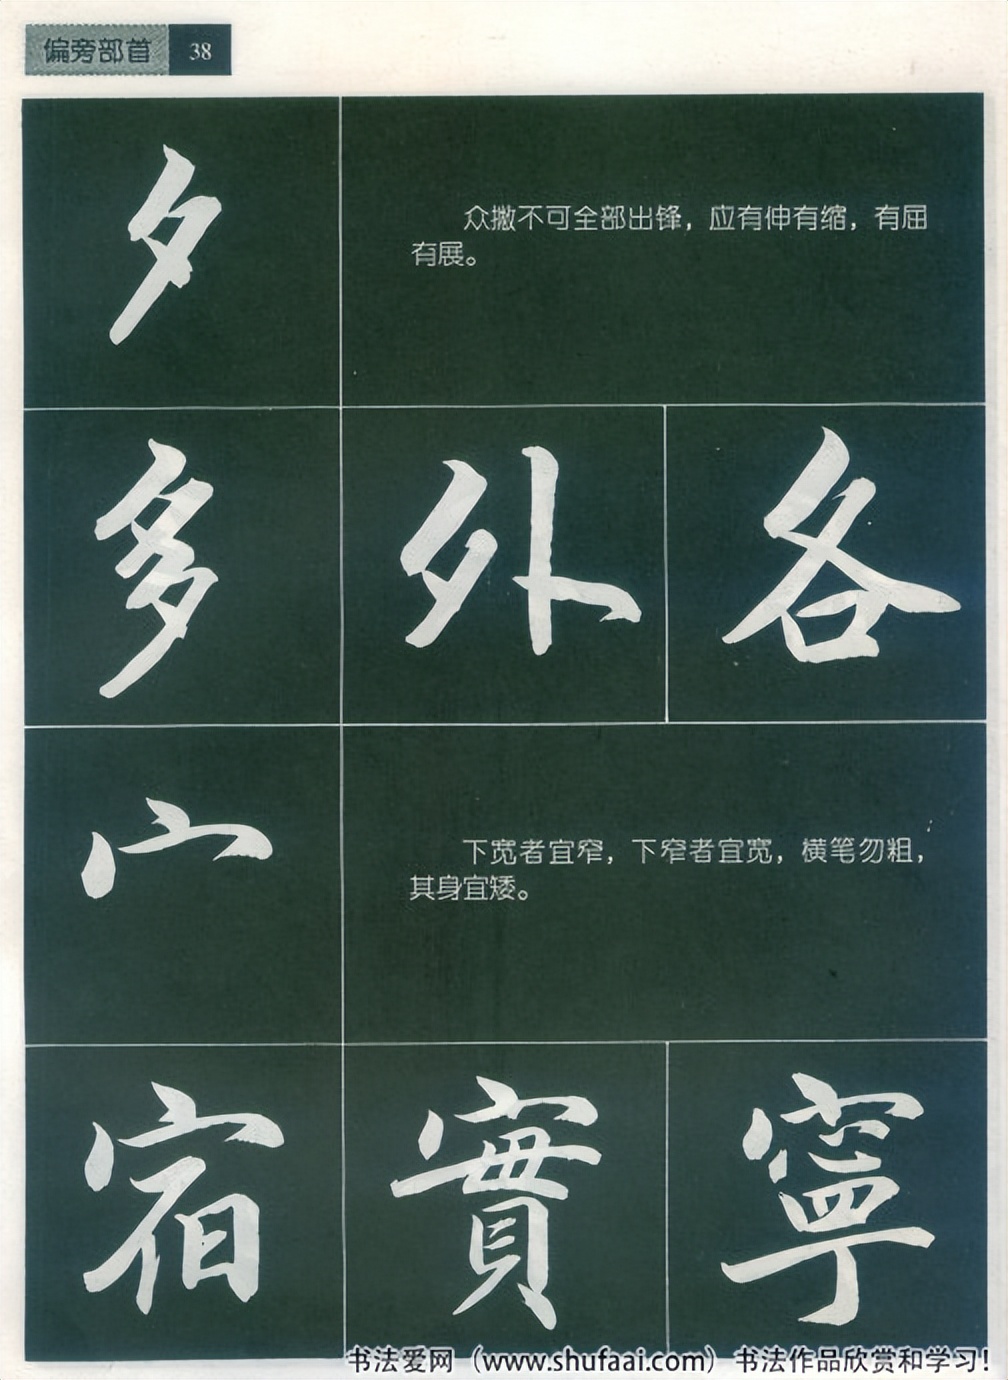 偏旁部首 38
夕
众撇不可全部出锋，应有伸有缩，有屈
有展。
多 外 各
宀
下宽者宜窄，下窄者宜宽，横笔勿粗，
其身宜矮。
宿 實 寧
书法爱网（www.shufaai.com）书法作品欣赏和学习！